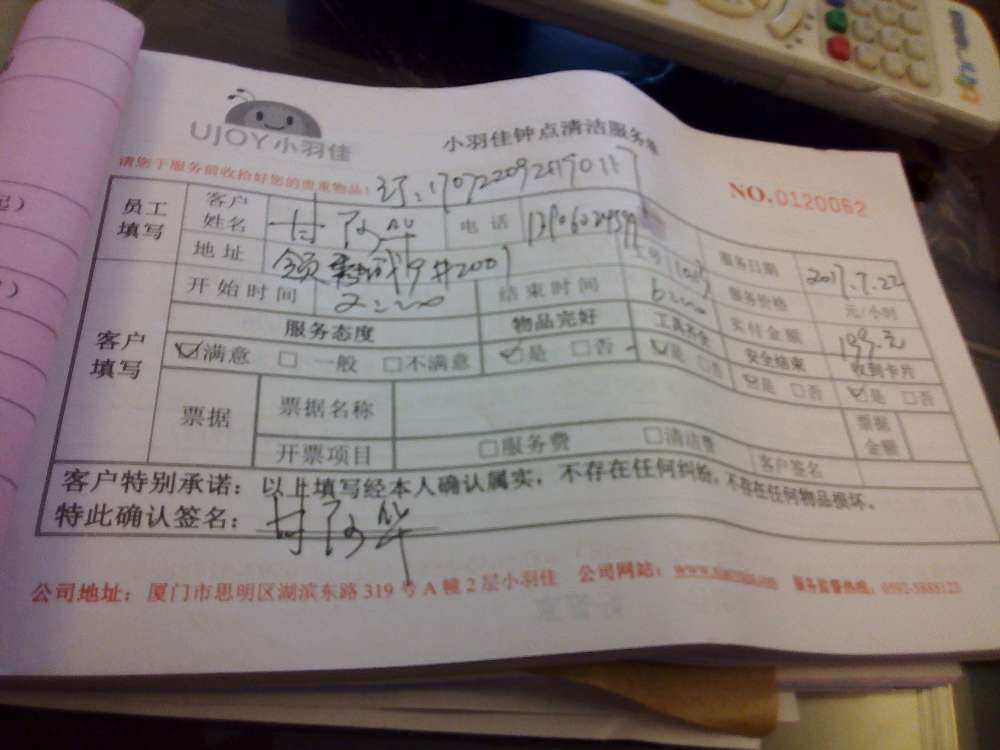 UJOY小羽佳
小羽佳钟点清洁服务单
请您于服务前收拾好您的贵重物品!
NO.0120062
员工填写 客户姓名 甘 华 电话
地址 19#2001 工号 服务日期 2017.7.22
客户填写 开始时间 2:00 结束时间 6:00 服务价格 元/小时
服务态度 物品完好 工具齐全 实付金额 199元
☑满意 □一般 □不满意 ☑是 □否 ☑是 □否 安全结束 收到卡片
☑是 □否 ☑是 □否
票据 票据名称 票据金额
开票项目 □服务费 □清洁费 客户签名
客户特别承诺:以上填写经本人确认属实,不存在任何纠纷,不存在任何物品损坏。
特此确认签名:甘 华
公司地址:厦门市思明区湖滨东路319号A幢2层小羽佳 公司网站: 服务监督热线: